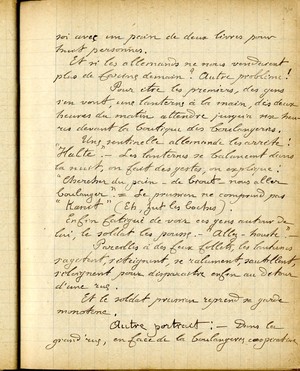 soi avec un pain de deux livres pour
huit personnes.
Et si les allemands ne nous vendaient
plus de farine demain? Autre problème!
Pour être les premiers, des gens
s'en vont, une lanterne à la main, dès deux
heures du matin attendre jusqu'à six heu-
res devant la boutique des Boulangeries.
Une sentinelle allemande les arrête!
"Halte" — Les lanternes se balancent dans
la nuit, on fait des gestes, on explique:
"Chercher du pain — du brot — nous aller
Boulanger" — Le prussien ne comprend pas
"Kanêt" (Eh, fut les
Enfin fatigué de voir ces gens autour de
lui, le soldat les pousse — "Allez — houste" —
Pareilles à des feux follets, les lanternes
s'agitent, s'éteignent, se rallument, sautillent,
s'éloignent pour disparaître enfin au détour
d'une rue.
Et le soldat prussien reprend sa garde
monotone.
Autre portrait: — Dans la
grand'rue, en face de la boulangerie coopérative